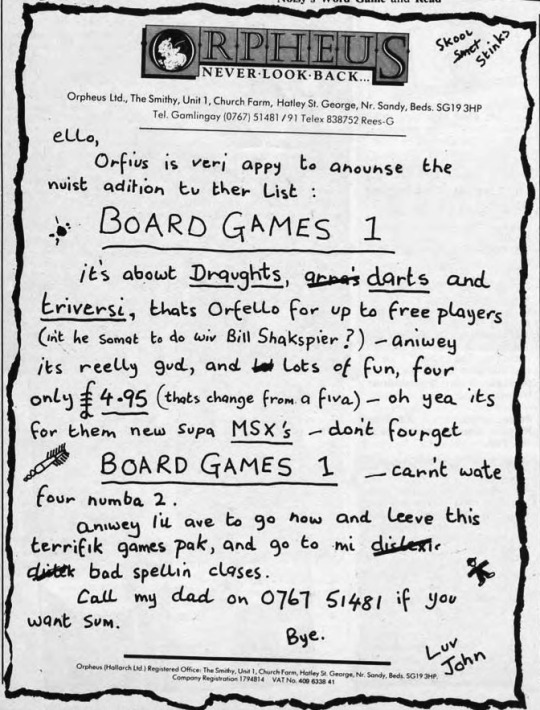 Noisy's Word Game and Read
ORPHEUS
NEVER·LOOK·BACK...
Skool
Smet
Stinks
Orpheus Ltd., The Smithy, Unit 1, Church Farm, Hatley St. George, Nr. Sandy, Beds. SG19 3HP
Tel. Gamlingay (0767) 51481/91 Telex 838752 Rees-G
ello,
Orfius is veri appy to anounse the
nuist adition tu ther List :
BOARD GAMES 1
it's abowt Draughts, darts and
triversi, thats Orfello for up to free players
(int he somat to do wiv Bill Shakspier?) - aniwey
its reelly gud, and Lots of fun, four
only £4.95 (thats change from a fiva) - oh yea its
for them new supa MSX's - don't fourget
BOARD GAMES 1 - carn't wate
four numba 2.
aniwey I'll ave to go now and leeve this
terrifik games pak, and go to mi dislexic
bad spellin clases.
Call my dad on 0767 51481 if you
want sum.
Bye.
Luv
John
Orpheus (Hallarch Ltd.) Registered Office: The Smithy, Unit 1, Church Farm, Hatley St. George, Nr. Sandy, Beds. SG19 3HP.
Company Registration 1794814 VAT No. 409 6338 41